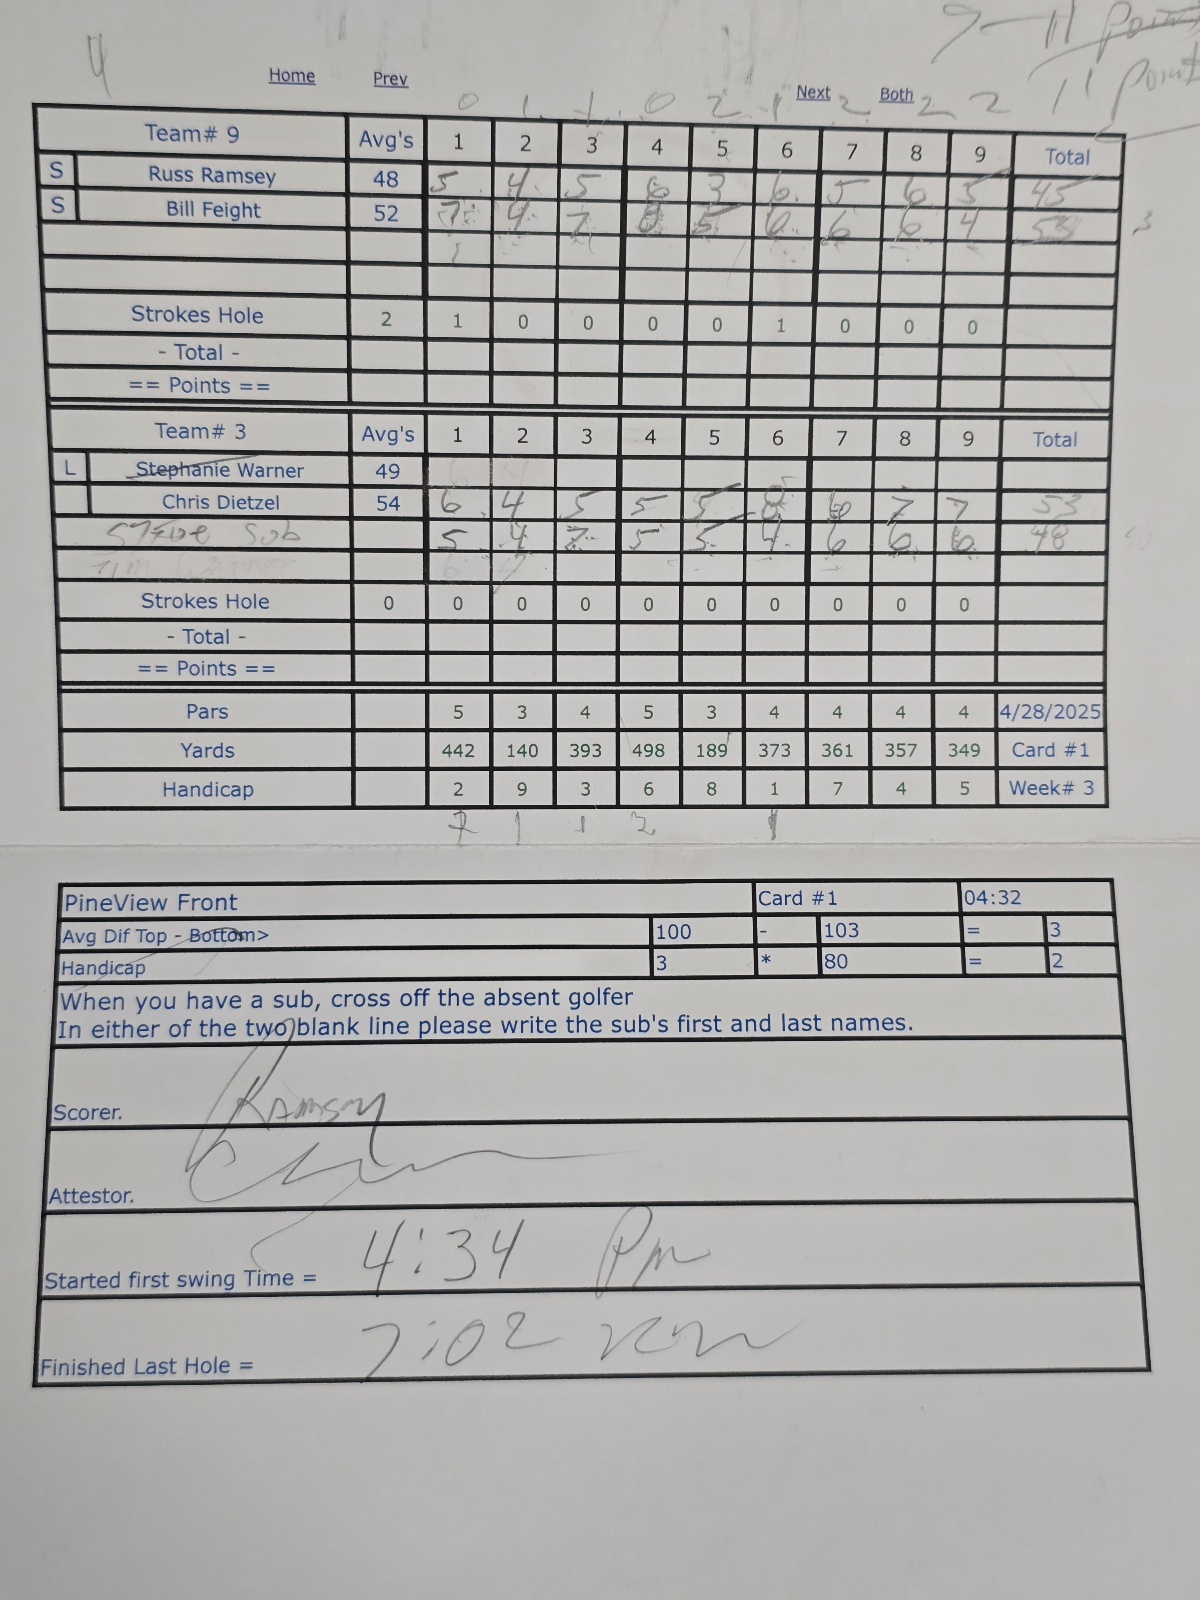 4 9 - 11 Points
Home Prev Next Both 11 Point
0 1 1 0 2 1 2 2 2
Team# 9 Avg's 1 2 3 4 5 6 7 8 9 Total
S Russ Ramsey 48 5 4 5 6 3 6 5 6 5 45
S Bill Feight 52 7 4 7 8 5 6 6 6 4 53 3
Strokes Hole 2 1 0 0 0 0 1 0 0 0
- Total -
== Points ==
Team# 3 Avg's 1 2 3 4 5 6 7 8 9 Total
L Stephanie Warner 49
Chris Dietzel 54 6 4 5 5 5 8 6 7 7 53
Steve Sub 5 4 7 5 5 4 6 6 6 48
Strokes Hole 0 0 0 0 0 0 0 0 0 0
- Total -
== Points ==
Pars 5 3 4 5 3 4 4 4 4 4/28/2025
Yards 442 140 393 498 189 373 361 357 349 Card #1
Handicap 2 9 3 6 8 1 7 4 5 Week# 3
2 1 1 2 1
PineView Front Card #1 04:32
Avg Dif Top - Bottom> 100 - 103 = 3
Handicap 3 * 80 = 2
When you have a sub, cross off the absent golfer
In either of the two blank line please write the sub's first and last names.
Scorer. Ramsey
Attestor.
Started first swing Time = 4:34 Pm
Finished Last Hole = 7:02